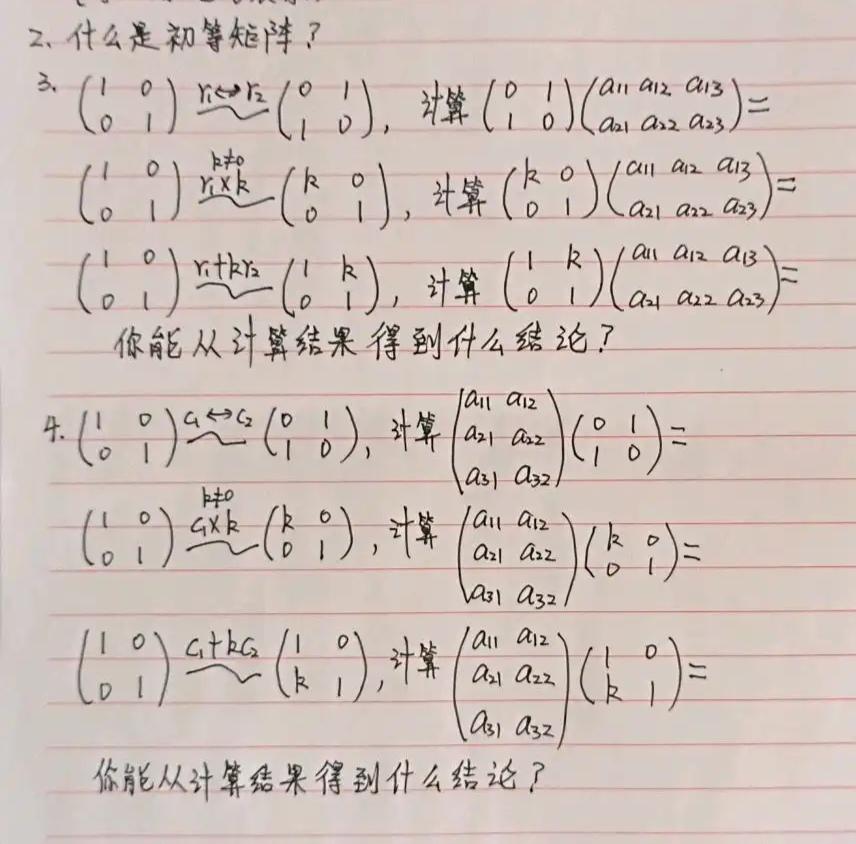 2、什么是初等矩阵？
3. (1 0 0 1) r₁↔r₂ (0 1 1 0), 计算 (0 1 1 0)(a₁₁ a₁₂ a₁₃ a₂₁ a₂₂ a₂₃)=
(1 0 0 1) k≠0 r₁×k (k 0 0 1), 计算 (k 0 0 1)(a₁₁ a₁₂ a₁₃ a₂₁ a₂₂ a₂₃)=
(1 0 0 1) r₁+kr₂ (1 k 0 1), 计算 (1 k 0 1)(a₁₁ a₁₂ a₁₃ a₂₁ a₂₂ a₂₃)=
你能从计算结果得到什么结论？
4. (1 0 0 1) c₁↔c₂ (0 1 1 0), 计算 (a₁₁ a₁₂ a₂₁ a₂₂ a₃₁ a₃₂)(0 1 1 0)=
(1 0 0 1) k≠0 c₁×k (k 0 0 1), 计算 (a₁₁ a₁₂ a₂₁ a₂₂ a₃₁ a₃₂)(k 0 0 1)=
(1 0 0 1) c₁+kc₂ (1 0 k 1), 计算 (a₁₁ a₁₂ a₂₁ a₂₂ a₃₁ a₃₂)(1 0 k 1)=
你能从计算结果得到什么结论？